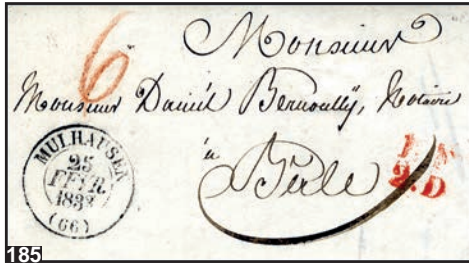 6
Monsieur
Monsieur Daniel Bernoully, Notaire
à
Bâle
MULHAUSEN
25
FEVR.
1832
(66)
2.D
185